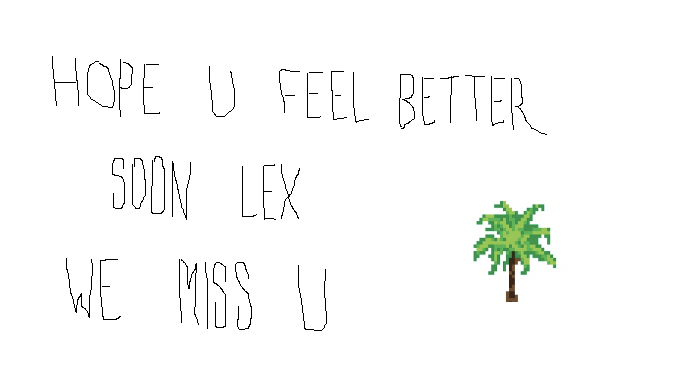 HOPE U FEEL BETTER
SOON LEX
WE MISS U